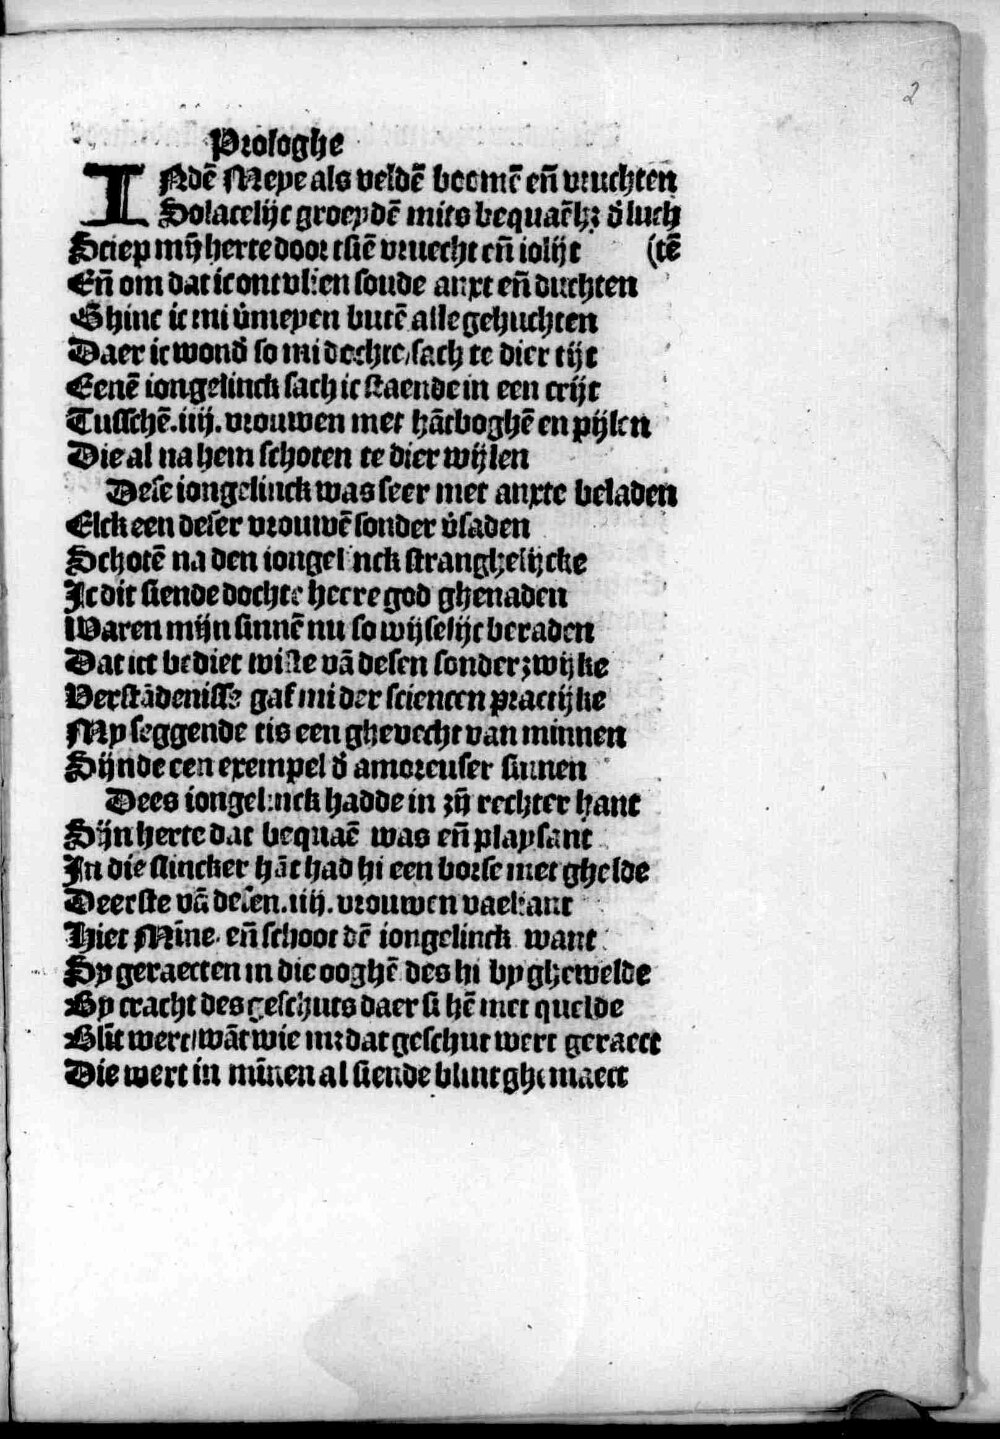 2
Prologhe
INdē Meye als veldē boomē eñ vruchten
Solacelijc groeydē mits bequaēh; d̄ luch
Sciep mȳ herte door tsiē vruecht eñ iolijt (tē
Eñ om dat ic ontvlien soude anxt eñ duchten
Ghinc ic mi v̄meyen butē alle gehuchten
Daer ic wond̄ so mi dochte/sach te dier tijt
Eenē iongelinck sach ic staende in een crijt
Tusschē.iiij.vrouwen met hātboghē en pijlen
Die al na hem schoten te dier wijlen
Dese iongelinck was seer met anxte beladen
Elck een deser vrouwē sonder v̄saden
Schotē na den iongelinck stranghelijcke
Ic dit siende dochte heere god ghenaden
Waren mijn sinnē nu so wijselijc beraden
Dat ict bediet wiste vā desen sonder zwijke
Verstādenisse gaf mi der sciencen practijke
My seggende tis een ghevecht van minnen
Sijnde een exempel d̄ amoreuser sinnen
Dees iongelinck hadde in zȳ rechter hant
Sijn herte dat bequaē was eñ playsant
In die slincker hāt had hi een borse met ghelde
Deerste vā desen.iiij.vrouwen vaeliant
Hiet Mīne eñ schoot dē iongelinck want
Sy geraecten in die ooghē des hi by ghewelde
By cracht des geschuts daer si hē met quelde
Blīt wert/wāt wie mz dat geschut wert geraect
Die wert in mīnen al siende blint ghemaect